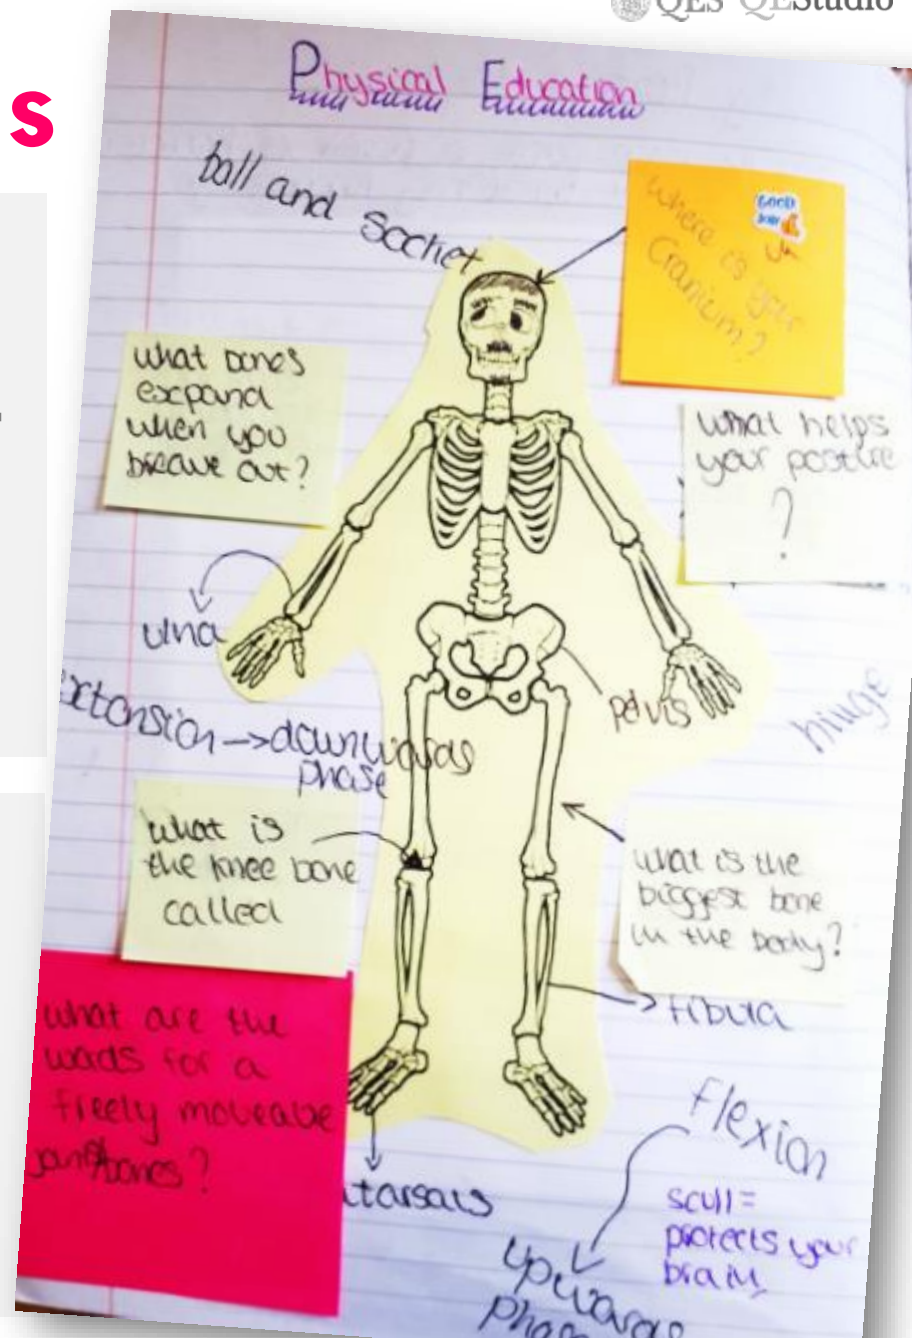 QES QEStudio
s
Physical Education
ball and socket
where is your
Cranium?
GOOD
JOB
what bones
expand
when you
breave out?
what helps
your posture
?
ulna
pelvis
hinge
extension → downwards
phase
what is
the knee bone
called
what is the
biggest bone
in the body?
what are the
words for a
freely moveable
bones?
→ fibula
tarsals
flexion
upwards
phase
scull =
protects your
brain